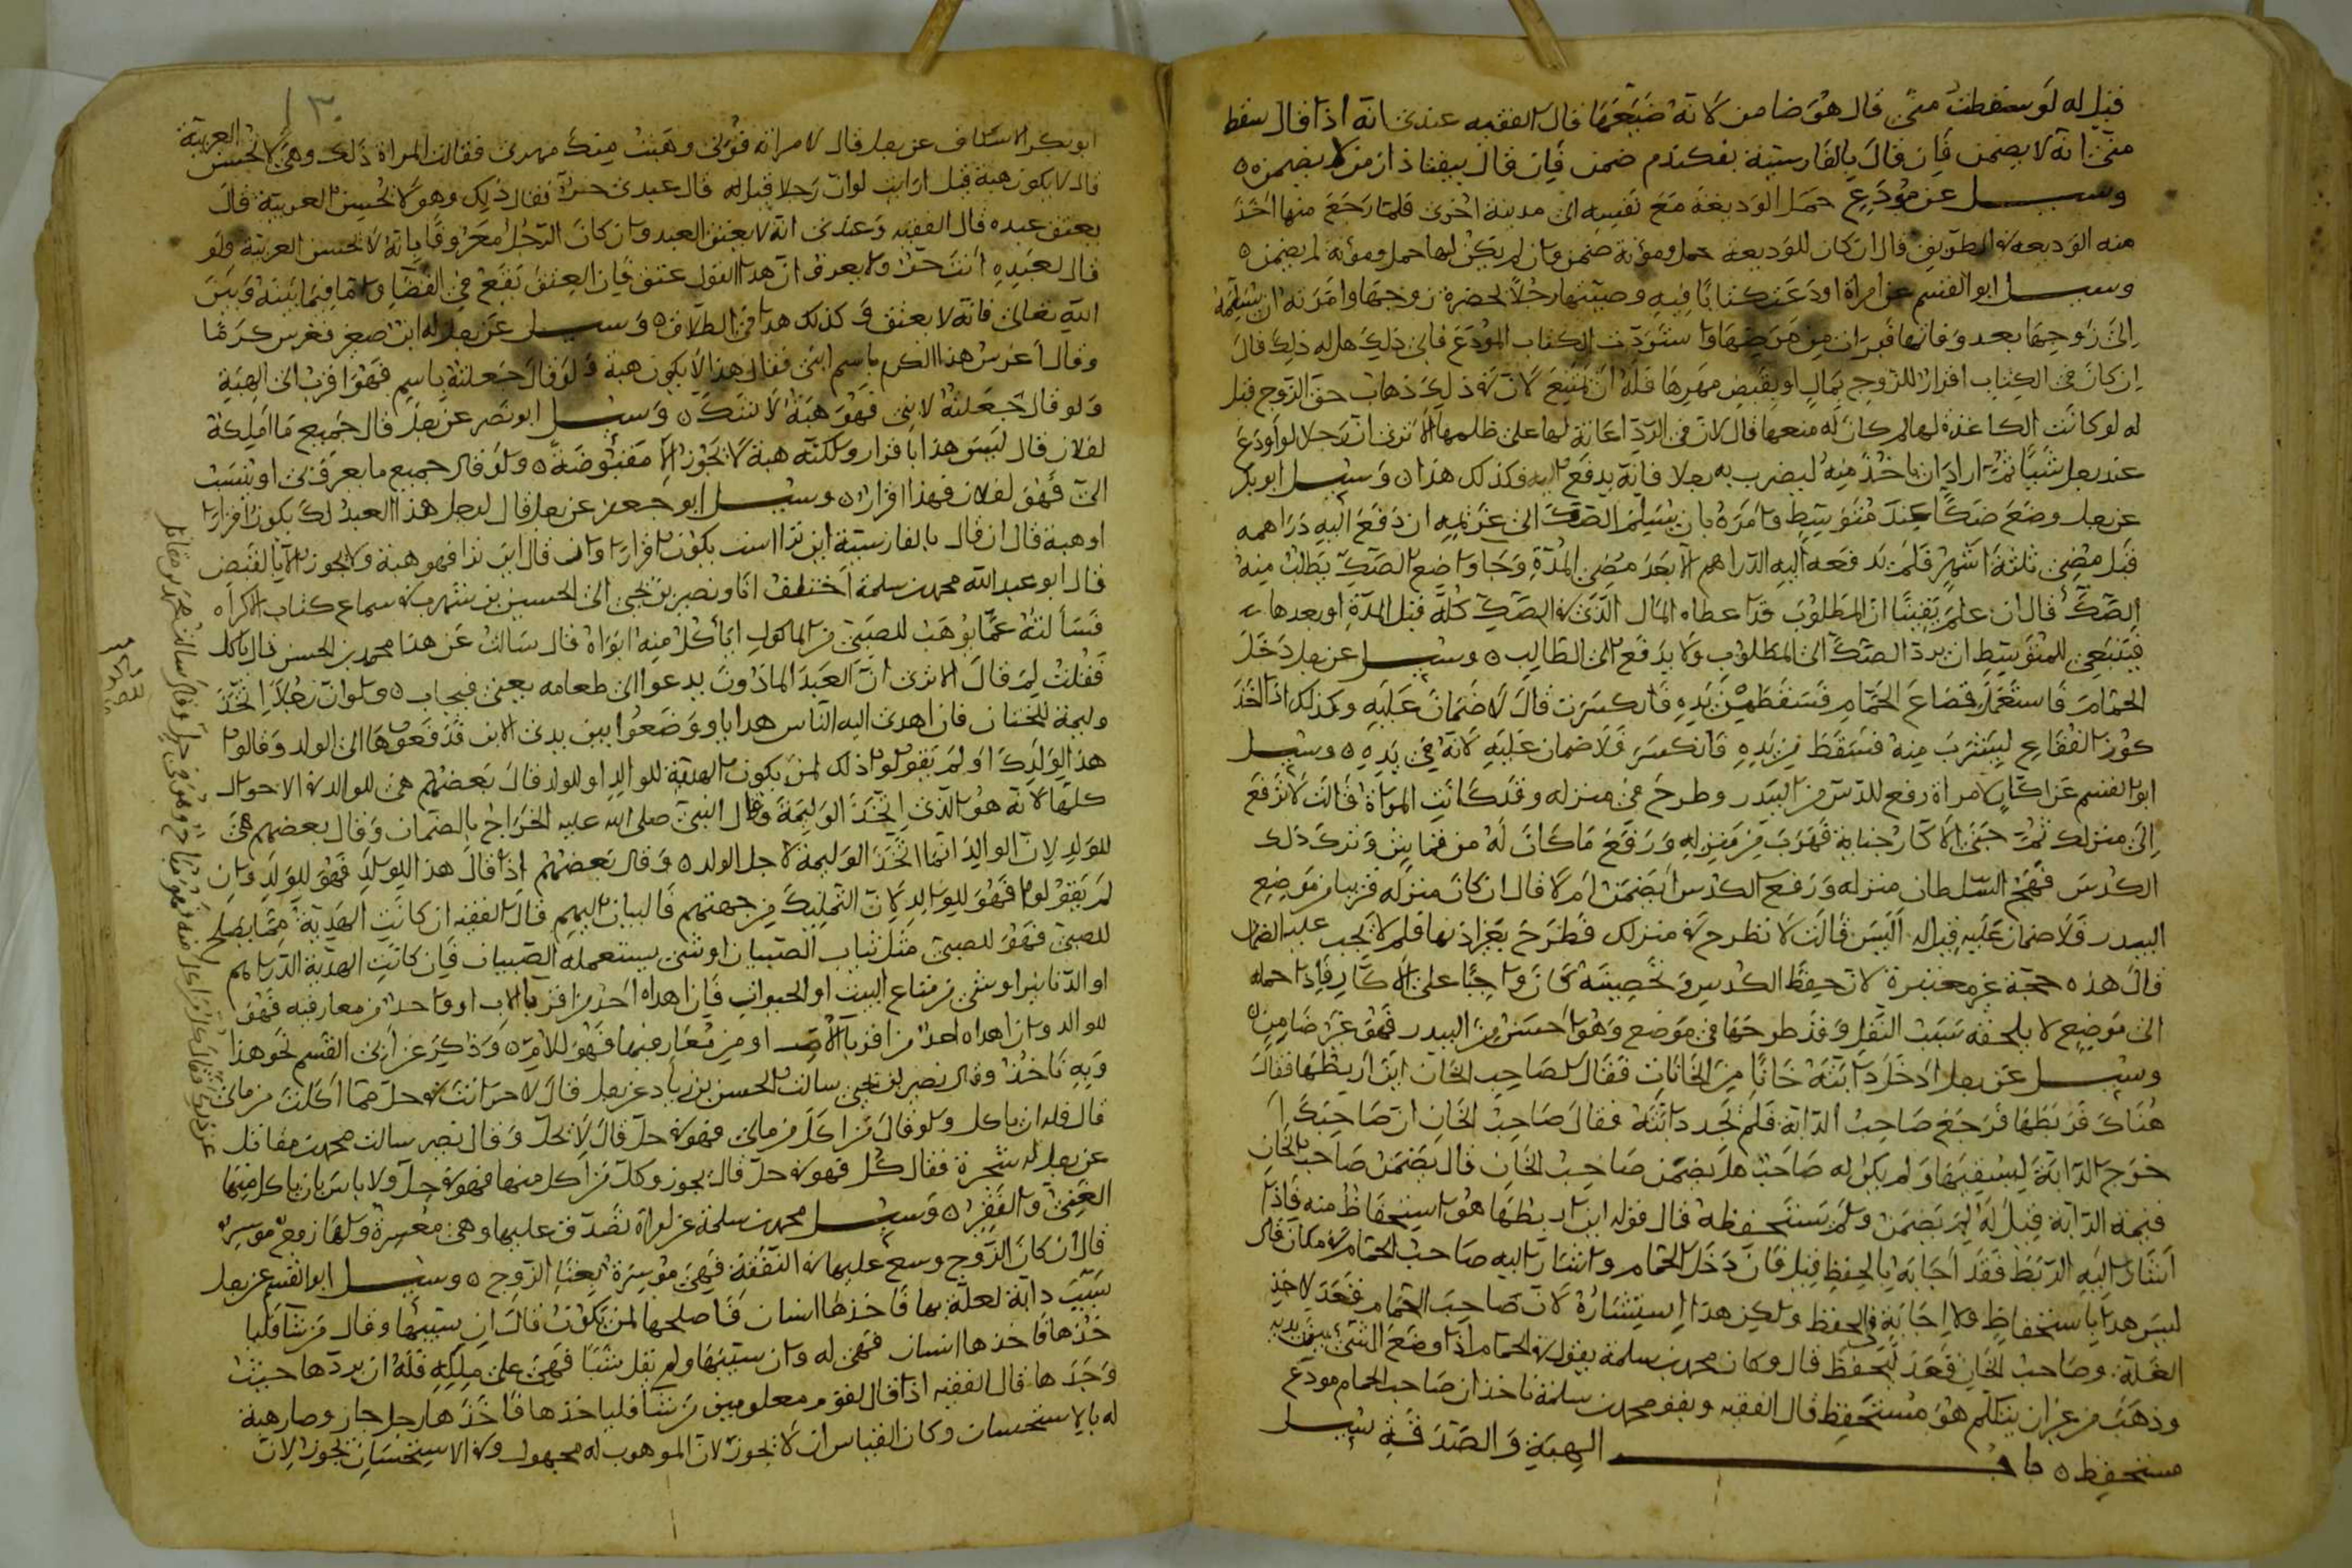 قيل له لو سقطت مني قال هو ضامن لانه ضيعها قال الفقيه عندي انه اذا قال سقط
مني انه لا يضمن فان قال بالفارسية بفكندم ضمن فان قال بيفتاذ از من لا يضمن ه
وسيل عن مودع حمل الوديعة مع نفسه الى مدينة اخرى فلما رجع منها اخذ
منه الوديعة في الطريق قال ان كان للوديعة حمل ومؤنة ضمن وان لم يكن لها حمل ومؤنة لم يضمن ه
وسيل ابو القسم عن امراة اودعت كتابا فيه وصيتها رجلا بحضرة زوجها وامرته ان يسلمه
الى زوجها بعد وفاتها فبرات من مرضها واستردت الكتاب المودع فابى ذلك هل له ذلك قال
ان كان في الكتاب اقرار للزوج بمال او بقبض مهرها فله ان يمتنع لان في ذلك ذهاب حق الزوج قيل
له لو كانت الكاغذة لها لم كان له منعها قال لان في الرد اعانة لها على ظلمها الا ترى ان رجلا لو اودع
عند رجل شيئا ثم اراد ان ياخذ منه ليضرب به رجلا فانه يدفع اليه فكذلك هذا ه وسيل ابو بكر
عن رجل وضع صكا عند متوسط وامره بان يسلم الصك الى غريمه ان دفع اليه دراهمه
قبل مضي ثلثة اشهر فلم يدفعه اليه الدراهم الا بعد مضي المدة وجا واضع الصك يطلب منه
الصك قال ان علم يقينا ان المطلوب قد اعطاه المال الذي في الصك كله قبل المدة او بعدها
فينبغي للمتوسط ان يرد الصك الى المطلوب ولا يدفع الى الطالب ه وسيل عن رجل دخل
الحمام فاستعمل قصاع الحمام فسقط من يده فانكسرت قال لا ضمان عليه وكذلك اذا اخذ
كوز الفقاعي ليشرب منه فسقط من يده فانكسر فلا ضمان عليه لانه في يده ه وسيل
ابو القسم عن اكار لامراة رفع للدس من البيدر وطرح في منزله وقد كانت المراة قالت لا ترفع
الى منزلك ثم جنى الاكار جناية فهرب من منزله ورفع ما كان له من قماش وترك ذلك
الكدس فهجم السلطان منزله ورفع الكدس ايضمن ام لا قال ان كان منزله قريبا من موضع
البيدر فلا ضمان عليه قيل له اليس قالت لا تطرح في منزلك فطرح بغير اذنها فلم لا يجب عليه الضمان
قال هذه حجة غير معتبرة لان حفظ الكدس وتحصينه كان واجبا على الاكار فاذا حمله
الى موضع لا يلحقه بسبب النقل وقد طرحها في موضع وهو احسن من البيدر فهو غير ضامن ه
وسيل عن رجل ادخل دابته خانا من الخانات فقال لصاحب الخان اين اربطها فقال
هناك فربطها فرجع صاحب الدابة فلم يجد دابته فقال صاحب الخان ان صاحبك
خرج الدابة ليسقيها ولم يكن له صاحب هل يضمن صاحب الخان قال يضمن صاحب الخان
قيمة الدابة قيل له لم يضمن ولم يستحفظه قال قوله اين اربطها هو استحفاظ منه فاذا
اشار اليه الربط فقد اجابه بالحفظ قيل فان دخل الحمام واشار اليه صاحب الحمام في مكان قال
ليس هذا باستحفاظ ولا اجابة في الحفظ ولكن هذا استشارة لان صاحب الحمام قعد لاخذ
الغلة وصاحب الخان قعد للحفظ قال وكان محمد بن سلمة يقول في الحمام اذا وضع الشي بين يديه
وذهب من غير ان يتكلم هو مستحفظ قال الفقيه وبقول محمد بن سلمة ناخذ ان صاحب الحمام مودع
مستحفظ ه باب الهبة والصدقة سيل
١٣٠
ابو بكر الاسكاف عن رجل قال لامراته قولي وهبت منك مهري فقالت المراة ذلك وهي لا تحسن العربية
قال لا يكون هبة قيل ارايت لو ان رجلا قيل له قال عبدي حر فقال ذلك وهو لا يحسن العربية قال
يعتق عبده قال الفقيه وعندي انه لا يعتق العبد وان كان الرجل معروفا بانه لا يحسن العربية ولو
قال لعبده انت حر ولا يعرف ان هذا القول عتق فان العتق يقع في القضا واما فيما بينه وبين
الله تعالى فانه لا يعتق وكذلك هذا في الطلاق ه وسيل عن رجل له ابن صغير فغرس كرما
وقال اغرس هذا الكرم باسم ابني فقال هذا لا يكون هبة ولو قال جعلته باسم فهو اقرب الى الهبة
ولو قال جعلته لابني فهو هبة لا شك ه وسيل ابو نصر عن رجل قال جميع ما املكه
لفلان قال ليس هذا باقرار ولكنه هبة لا تجوز الا مقبوضة ه ولو قال جميع ما يعرف بي او ينسب
الي فهو لفلان فهذا اقرار ه وسيل ابو جعفر عن رجل قال لرجل هذا العبد لك يكون اقرارا
او هبة قال ان قال بالفارسية اين ترا است يكون اقرارا وان قال اين ترا فهو هبة ولا يجوز الا بالقبض
قال ابو عبد الله محمد بن سلمة اختلفت انا ونصير بن يحيى الى الحسين بن شهرب في سماع كتاب الاكراه
فسالته عما يوهب للصبي من الماكول اياكل منه ابواه قال سالت عن هذا محمد بن الحسن قال ياكل
فقلت لم قال الا ترى ان العبد الماذون يدعو الى طعامه يعني فيجاب ه ولو ان رجلا اتخذ
وليمة للختان فان اهدى اليه الناس هدايا ووضعوا بين يدي الابن قد دفعوها الى الولد وقالوا
هذا لولدك او لم يقولوا ذلك لمن يكون الهدية للوالد او للولد قال بعضهم هي للوالد في الاحوال
كلها لانه هو الذي اتخذ الوليمة وقال النبي صلى الله عليه الخراج بالضمان وقال بعضهم هي
للولد لان الوالد انما اتخذ الوليمة لاجل الولد ه وقال بعضهم اذا قال هذا للولد فهو للولد وان
لم يقولوا فهو للوالد لان التمليك من جهتهم فالبيان اليهم قال الفقيه ان كانت الهدية مما يصلح
للصبي فهو للصبي مثل ثياب الصبيان او شي يستعمله الصبيان فان كانت الهدية الدراهم
او الدنانير او شي من متاع البيت او الحيوان فان اهداه احد من اقربا الاب او واحد من معارفه فهو
للوالد وان اهداه احد من اقربا الام او من معارفها فهو للام ه وذكر عن ابي القسم نحو هذا
وبه ناخذ وقال نصير بن يحيى سالت الحسن بن زياد عن رجل قال لاخر انت في حل مما اكلت من مالي
قال فله ان ياكل ولو قال من اكل من مالي فهو في حل قال لا يحل وقال نصير سالت محمد بن مقاتل
عن رجل له شجرة فقال كل فهو في حل قال يجوز وكل من اكل منها فهو في حل ولا باس بان ياكل منها
الغني والفقير ه وسيل محمد بن سلمة عن امراة تصدق عليها وهي معسرة ولها زوج موسر
قال ان كان الزوج وسع عليها في النفقة فهي موسرة بغنا الزوج ه وسيل ابو القسم عن رجل
سيب دابة لعلة بها فاخذها انسان فاصلحها لمن تكون قال ان سيبها وقال من شا فليا
خذها فاخذها انسان فهي له وان سيبها ولم يقل شيئا فهي على ملكه فله ان يردها حيث
وجدها قال الفقيه اذا قال لقوم معلومين من شا فلياخذها فاخذها رجل جاز وصار هبة
له بالاستحسان وكان القياس ان لا يجوز لان الموهوب له مجهول وفي الاستحسان يجوز لان